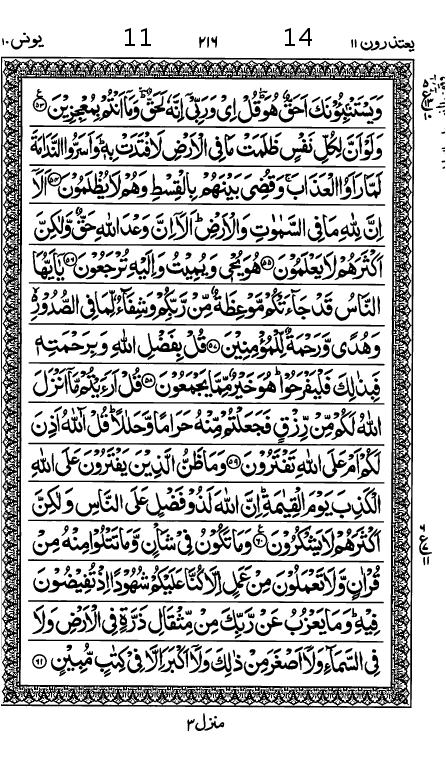 یونس ١٠ 11 ٢١٦ 14 یعتذرون ١١
وَيَسْتَنْۢبِـُٔوْنَكَ اَحَقٌّ هُوَؔ قُلْ اِيْ وَرَبِّيْۤ اِنَّهٗ لَحَقٌّ ؔؕ وَمَاۤ اَنْتُمْ بِمُعْجِزِيْنَ ۟۠ ٥٣
وَلَوْ اَنَّ لِكُلِّ نَفْسٍ ظَلَمَتْ مَا فِي الْاَرْضِ لَافْتَدَتْ بِهٖ ؕ وَاَسَرُّوا النَّدَامَةَ
لَمَّا رَاَوُا الْعَذَابَ ۚ وَقُضِيَ بَيْنَهُمْ بِالْقِسْطِ وَهُمْ لَا يُظْلَمُوْنَ ٥٤ اَلَاۤ
اِنَّ لِلّٰهِ مَا فِي السَّمٰوٰتِ وَالْاَرْضِ ؕ اَلَاۤ اِنَّ وَعْدَ اللّٰهِ حَقٌّ وَّلٰكِنَّ
اَكْثَرَهُمْ لَا يَعْلَمُوْنَ ٥٥ هُوَ يُحْيٖ وَيُمِيْتُ وَاِلَيْهِ تُرْجَعُوْنَ ٥٦ يٰۤاَيُّهَا
النَّاسُ قَدْ جَآءَتْكُمْ مَّوْعِظَةٌ مِّنْ رَّبِّكُمْ وَشِفَآءٌ لِّمَا فِي الصُّدُوْرِ ۙ۬
وَهُدًى وَّرَحْمَةٌ لِّلْمُؤْمِنِيْنَ ٥٧ قُلْ بِفَضْلِ اللّٰهِ وَبِرَحْمَتِهٖ
فَبِذٰلِكَ فَلْيَفْرَحُوْا ؕ هُوَ خَيْرٌ مِّمَّا يَجْمَعُوْنَ ٥٨ قُلْ اَرَءَيْتُمْ مَّاۤ اَنْزَلَ
اللّٰهُ لَكُمْ مِّنْ رِّزْقٍ فَجَعَلْتُمْ مِّنْهُ حَرَامًا وَّحَلٰلًا ؕ قُلْ آٰللّٰهُ اَذِنَ
لَكُمْ اَمْ عَلَى اللّٰهِ تَفْتَرُوْنَ ٥٩ وَمَا ظَنُّ الَّذِيْنَ يَفْتَرُوْنَ عَلَى اللّٰهِ
الْكَذِبَ يَوْمَ الْقِيٰمَةِ ؕ اِنَّ اللّٰهَ لَذُوْ فَضْلٍ عَلَى النَّاسِ وَلٰكِنَّ
اَكْثَرَهُمْ لَا يَشْكُرُوْنَ ٦٠ وَمَا تَكُوْنُ فِيْ شَاْنٍ وَّمَا تَتْلُوْا مِنْهُ مِنْ
قُرْاٰنٍ وَّلَا تَعْمَلُوْنَ مِنْ عَمَلٍ اِلَّا كُنَّا عَلَيْكُمْ شُهُوْدًا اِذْ تُفِيْضُوْنَ
فِيْهِ ؕ وَمَا يَعْزُبُ عَنْ رَّبِّكَ مِنْ مِّثْقَالِ ذَرَّةٍ فِي الْاَرْضِ وَلَا
فِي السَّمَآءِ وَلَاۤ اَصْغَرَ مِنْ ذٰلِكَ وَلَاۤ اَكْبَرَ اِلَّا فِيْ كِتٰبٍ مُّبِيْنٍ ٦١
منزل ٣